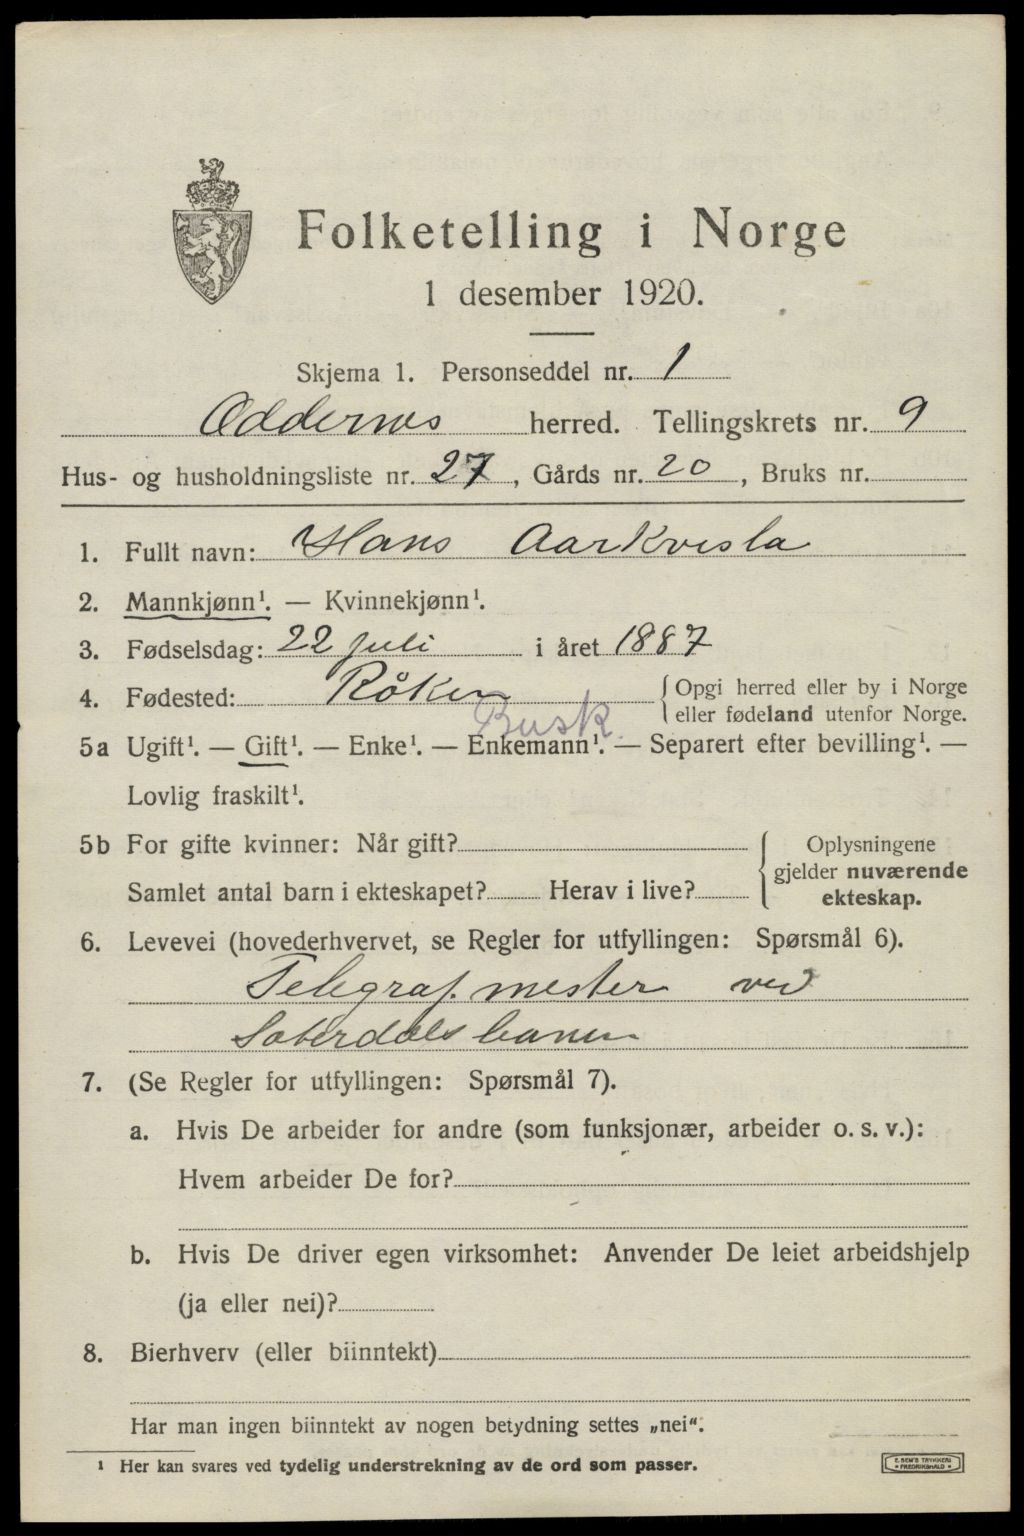 Folketelling i Norge
1 desember 1920.
Skjema 1. Personseddel nr. 1
Oddernes herred. Tellingskrets nr. 9
Hus- og husholdningsliste nr. 27, Gårds nr. 20, Bruks nr.
1. Fullt navn: Hans Aarkvisla
2. Mannkjønn¹. — Kvinnekjønn¹.
3. Fødselsdag: 22 juli i året 1887
4. Fødested: Røken { Opgi herred eller by i Norge
eller fødeland utenfor Norge.
Busk.
5a Ugift¹. — Gift¹. — Enke¹. — Enkemann¹. — Separert efter bevilling¹. —
Lovlig fraskilt¹.
5b For gifte kvinner: Når gift? { Oplysningene
gjelder nuværende
Samlet antal barn i ekteskapet? Herav i live? ekteskap.
6. Levevei (hovederhvervet, se Regler for utfyllingen: Spørsmål 6).
Telegraf. mester ved
Seterdalsbanen
7. (Se Regler for utfyllingen: Spørsmål 7).
a. Hvis De arbeider for andre (som funksjonær, arbeider o. s. v.):
Hvem arbeider De for?
b. Hvis De driver egen virksomhet: Anvender De leiet arbeidshjelp
(ja eller nei)?
8. Bierhverv (eller biinntekt)
Har man ingen biinntekt av nogen betydning settes „nei“.
¹ Her kan svares ved tydelig understrekning av de ord som passer.
E. SEM'S TRYKKERI
FREDRIKSHALD